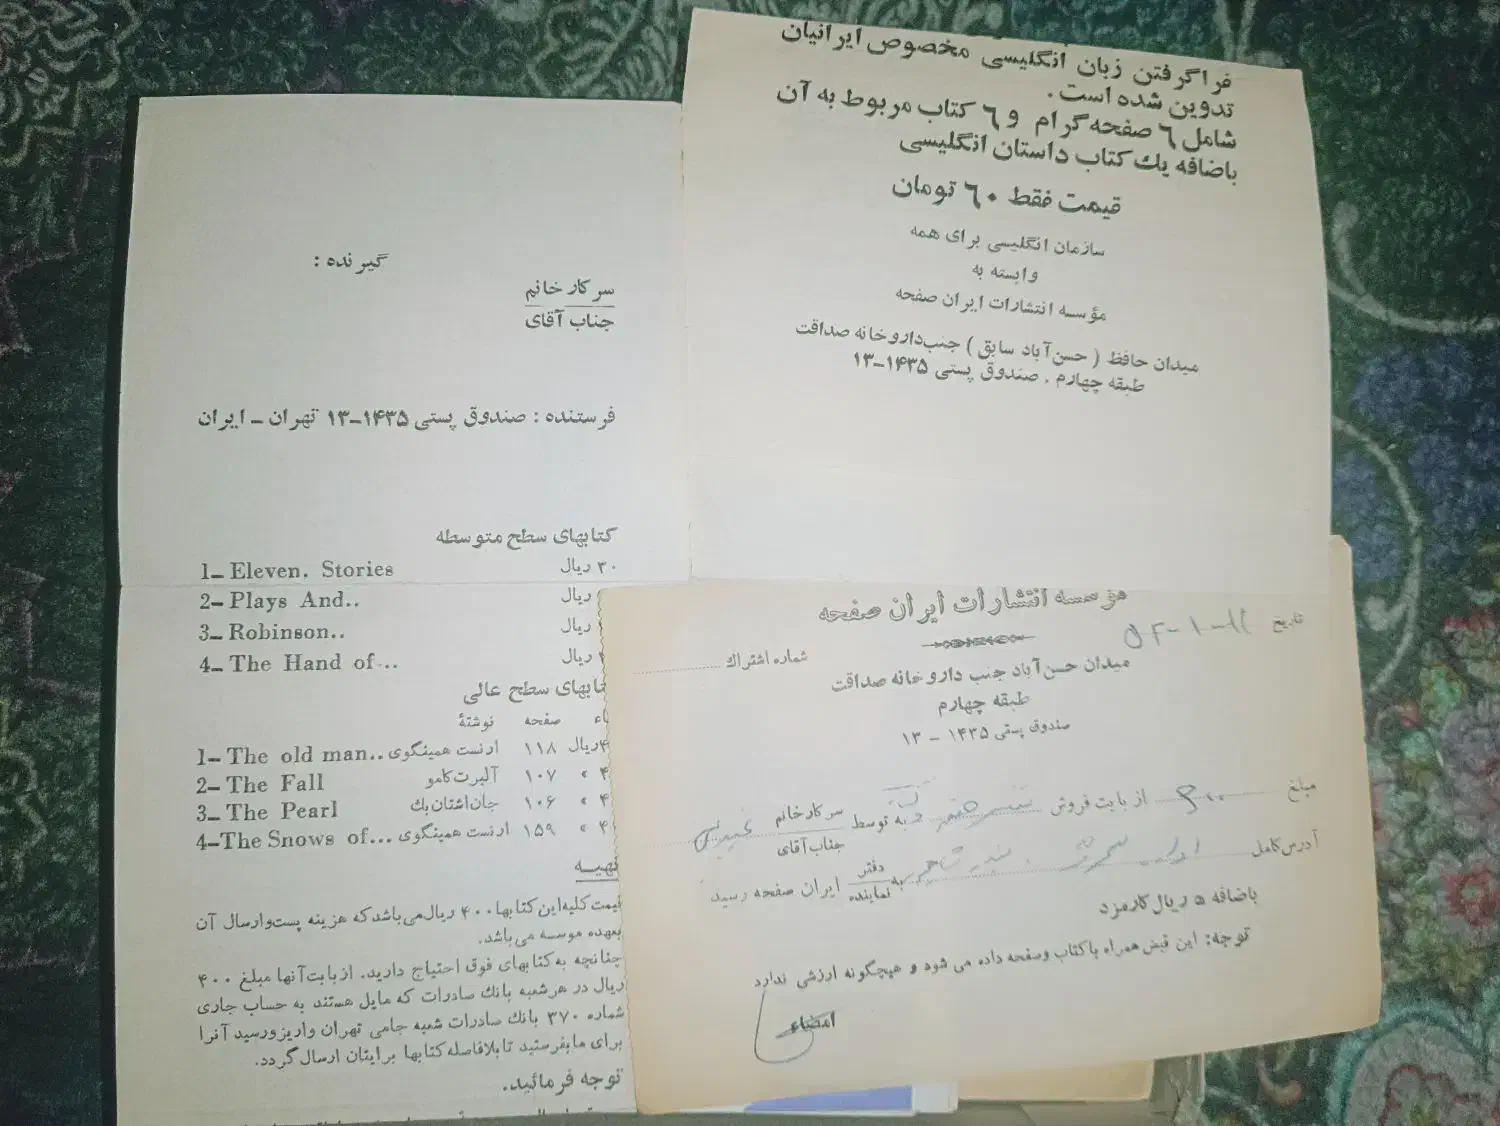 فراگرفتن زبان انگلیسی مخصوص ایرانیان
تدوین شده است.
شامل ٦ صفحه گرام و ٦ کتاب مربوط به آن
باضافه یك کتاب داستان انگلیسی
قیمت فقط ٦۰ تومان
سازمان انگلیسی برای همه
وابسته به
مؤسسه انتشارات ایران صفحه
میدان حافظ ( حسن‌آباد سابق ) جنب داروخانه صداقت
طبقه چهارم . صندوق پستی ۱۴۳۵-۱۳
گیرنده :
سرکار خانم
جناب آقای
فرستنده : صندوق پستی ۱۴۳۵-۱۳ تهران - ایران
کتابهای سطح متوسطه
1- Eleven. Stories ۳۰ ریال
2- Plays And.. ریال
3- Robinson.. ریال
4- The Hand of... ریال
کتابهای سطح عالی
صفحه نوشتهٔ
1- The old man.. ارنست همینگوی ۱۱۸ ریال
2- The Fall آلبرت کامو ۱۰۷ »
3- The Pearl جان اشتان بك ۱۰۶ »
4-The Snows of... ارنست همینگوی ۱۵۹ »
تهیه
قیمت کلیه این کتابها ۴۰۰ ریال می‌باشد که هزینه پست و ارسال آن
بعهده موسسه می‌باشد.
چنانچه به کتابهای فوق احتیاج دارید. از بابت آنها مبلغ ۴۰۰
ریال در هر شعبه بانك صادرات که مایل هستند به حساب جاری
شماره ۳۷۰ بانك صادرات شعبه جامی تهران واریز و رسید آنرا
برای ما بفرستید تا بلافاصله کتابها برایتان ارسال گردد.
توجه فرمائید.
مؤسسه انتشارات ایران صفحه
تاریخ
شماره اشتراك
میدان حسن‌آباد جنب داروخانه صداقت
طبقه چهارم
صندوق پستی ۱۴۳۵ - ۱۳
مبلغ از بابت فروش به توسط سرکار خانم
جناب آقای
آدرس کامل به دفتر نماینده ایران صفحه رسید
باضافه ۵ ریال کارمزد
توجه: این قبض همراه با کتاب و صفحه داده می شود و هیچگونه ارزشی ندارد
امضاء